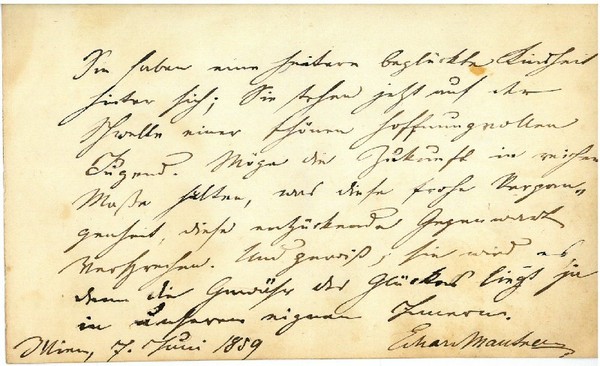 Sie haben eine heitere beglückte Kindheit
hinter sich; Sie stehen jetzt auf der
Schwelle einer schönen hoffnungsvollen
Jugend. Möge die Zukunft in reichem
Maße halten, was diese frohe Vergan-
genheit, diese entzückende Gegenwart
versprechen. Und gewiß, sie wird es
denn die Gewähr des Glückes liegt ja
in unserem eignen Innern.
Wien, 7. Juni 1859 Eduard Mautner